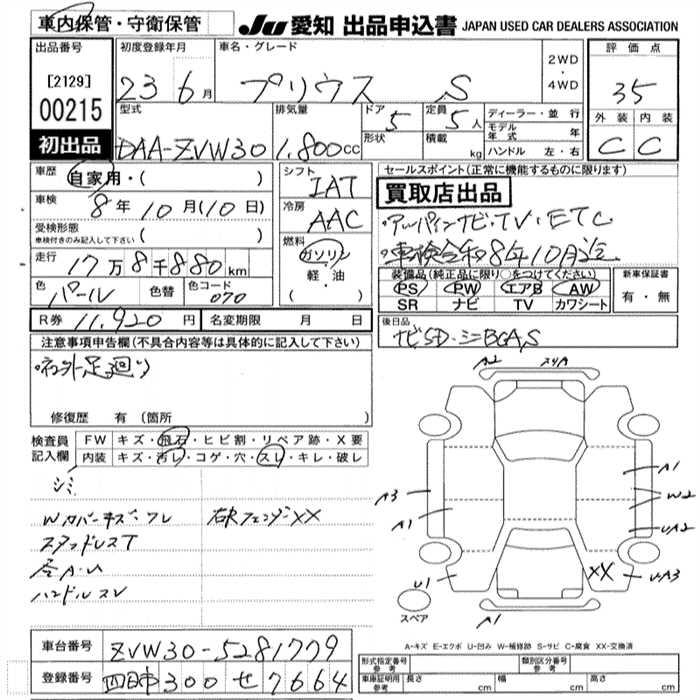 車内保管・守衛保管
JU 愛知 出品申込書 JAPAN USED CAR DEALERS ASSOCIATION
出品番号 初度登録年月 車名・グレード 評価点
[2129] 23 6月 プリウス S 2WD・4WD 35
00215 型式 排気量 ドア 5 定員 5人 ディーラー・並行 外装 内装
初出品 DAA-ZVW30 1,800cc 形状 積載 kg モデル年式 年 C C
ハンドル 左・右
車歴 自家用・( ) シフト IAT セールスポイント(正常に機能するものに限ります)
車検 8年10月(10日) 冷房 AAC 買取店出品
受検形態 車検付きのみ記入して下さい ( ) アルパインナビ・TV・ETC
走行 17万8千880km 燃料 ガソリン・軽・油 車検令和8年10月迄
色 パール 色替 色コード 070 装備品(純正品に限り○をつけてください) 新車保証書
PS PW エアB AW 有・無
SR ナビ TV カワシート
R券 11,920円 名変期限 月 日 後日品
注意事項申告欄(不具合内容等は具体的に記入して下さい) ナビSD・
外 足廻り
修復歴 有(箇所
検査員記入欄 FW キズ・飛石・ヒビ割・リペア跡・X要
内装 キズ・汚レ・コゲ・穴・スレ・キレ・破レ
シミ
Wカバーキズ・ワレ 右Rフェンダーxx
スタッドレスT
ハンドルスレ
A2
A1
W2
UA2
A3
A1
U1
XX
UA3
A1
スペア
A-キズ E-エクボ U-凹み W-補修跡 S-サビ C-腐食 XX-交換済
車台番号 ZVW30-5281779 形式指定番号 参考 類別区分番号 参考
登録番号 四日市300せ7664 車庫証明用 参考 長さ cm 幅 cm 高さ cm